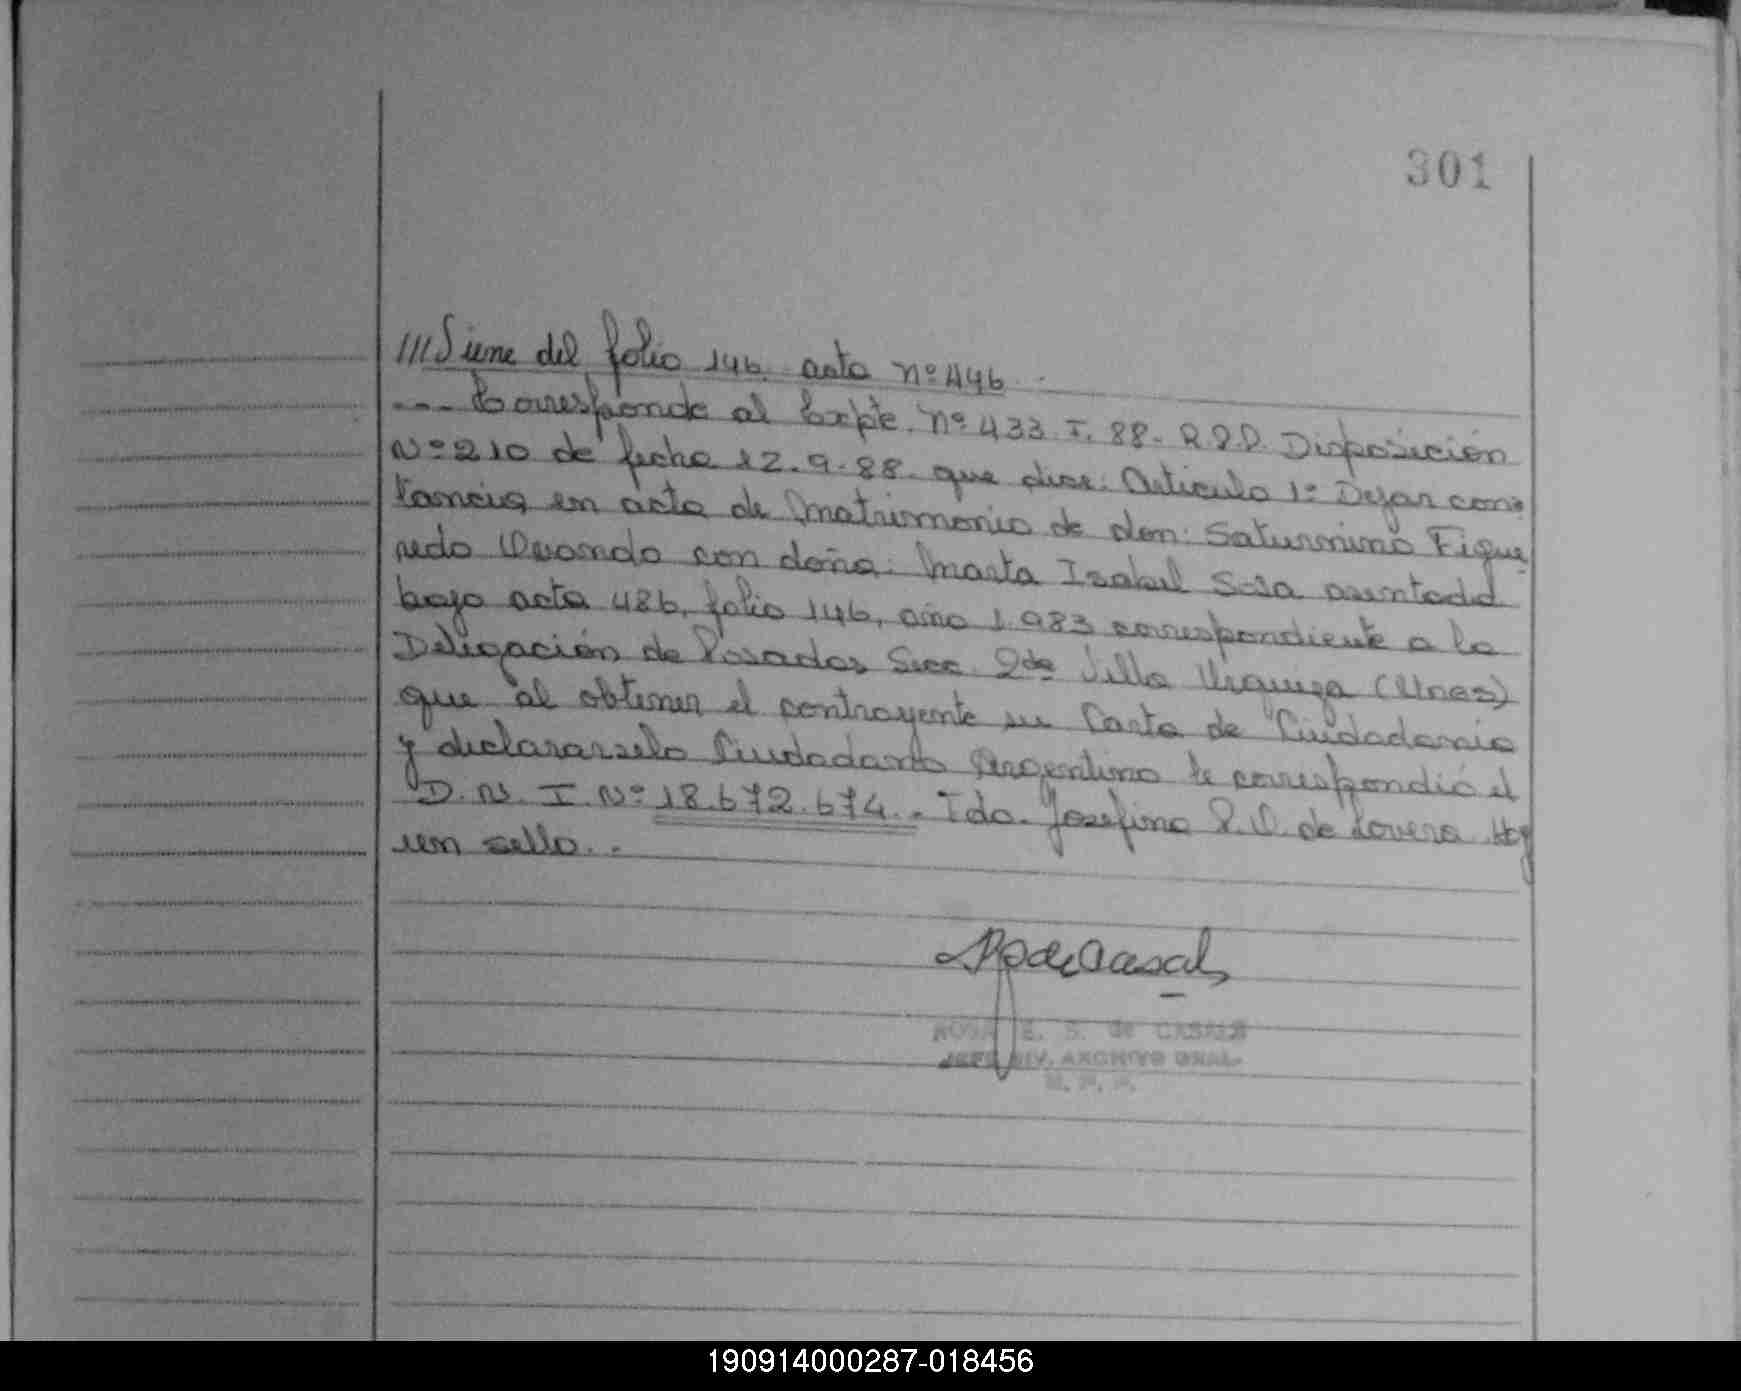 301
///Viene del folio 146. acta nº 446.
--- Corresponde al Expte. Nº 433. I. 88. R.P.P. Disposición
Nº 210 de fecha 12.9.88. que dice: Articulo 1º Dejar cons
tancia en acta de Matrimonio de don: Saturnino Figue
redo con doña: Marta Isabel Sosa asentada
bajo acta 486, folio 146, año 1.983 correspondiente a la
Delegación de Posadas Secc. 2da Villa Urquiza (Mnes)
que al obtener el contrayente su Carta de Ciudadania
y declararselo Ciudadano Argentino le correspondió el
D. N. I. Nº 18.672.674.- Fdo. Josefina de Lovera. Hay
un sello..
ROSA E. S. de CASALS
JEFE DIV. ARCHIVO GRAL.
R. P. P.
190914000287-018456